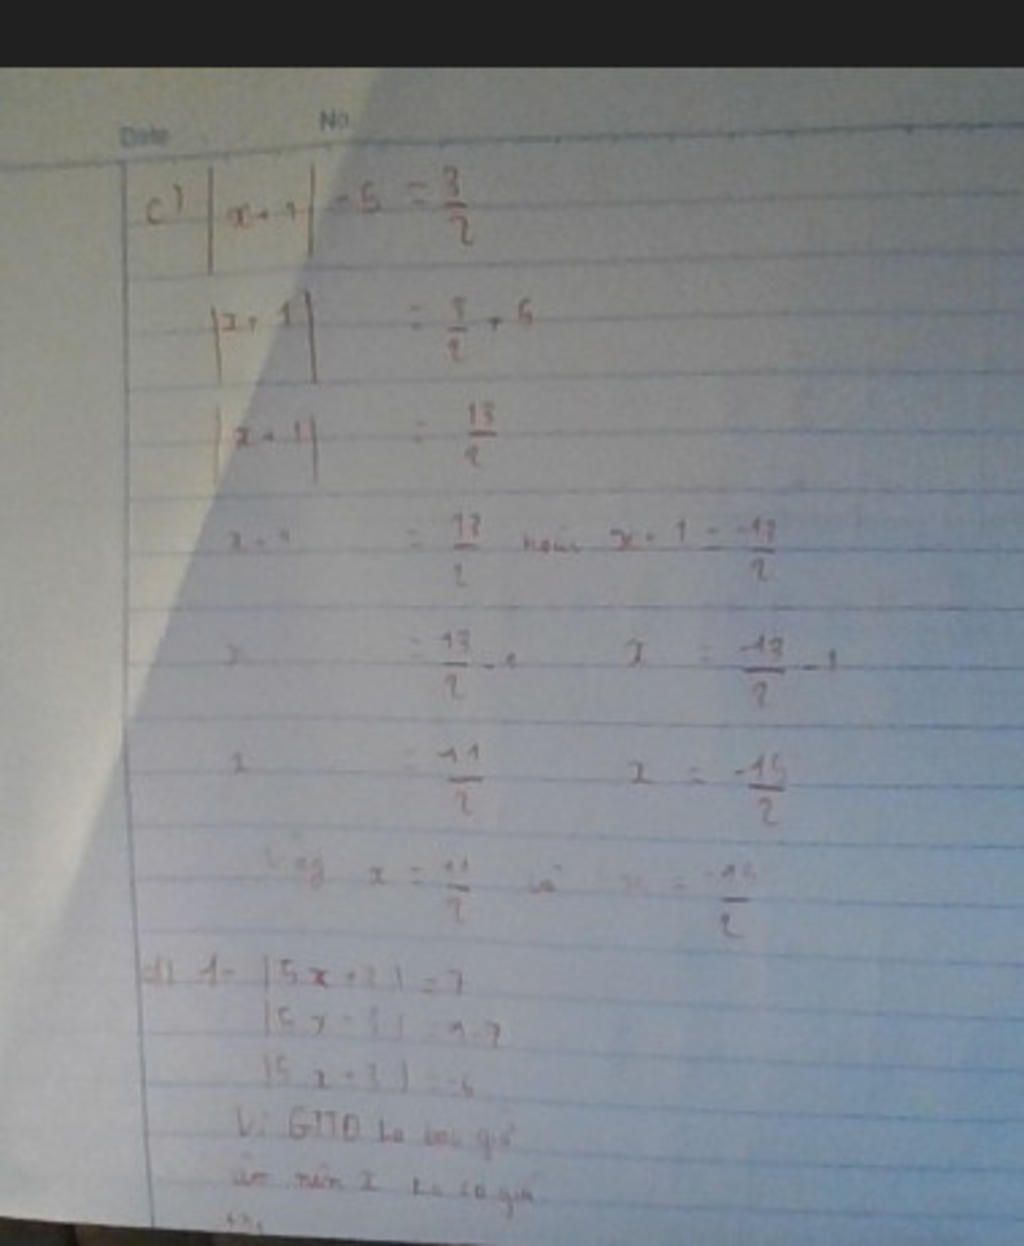 Date No
c) |x+1| - 5 = 3/2
|x+1| = 3/2 + 5
|x+1| = 13/2
x+1 = 13/2 hoặc x+1 = -13/2
x = 13/2 - 1 x = -13/2 - 1
x = 11/2 x = -15/2
Vậy x = 11/2 và x = -15/2
d) 1- |5x+3| = 7
|5x+3| = 1-7
|5x+3| = -6
Vì GTTĐ ko bao giờ
âm nên x ko có giá
trị